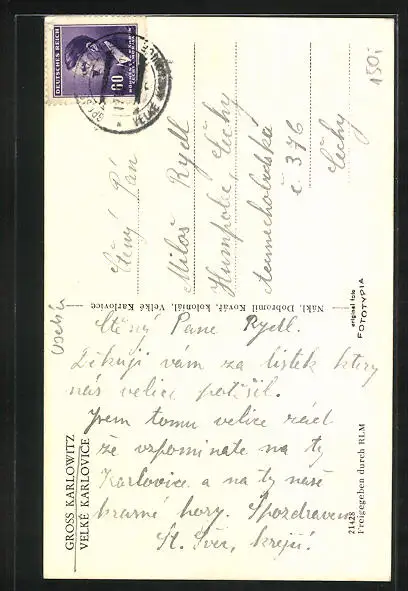 150,-
DEUTSCHES REICH
60
BÖHMEN UND MÄHREN
ČECHY A MORAVA
Ctěný Pán
Miloš Rydl
Humpolec, Čechy
č. 376
Čechy
Nákl. Dobromil Kovář, koloniál, Velké Karlovice
original foto
FOTOTYPIA
GROSS KARLOWITZ
VELKÉ KARLOVICE
21428
Freigegeben durch RLM
Ctěný Pane Rydl.
Děkuji vám za lístek který
nás velice potěšil.
Jsem tomu velice rád
že vzpomínate na ty
Karlovice a na ty naše
krásné hory. Spozdravem
St. krejčí.